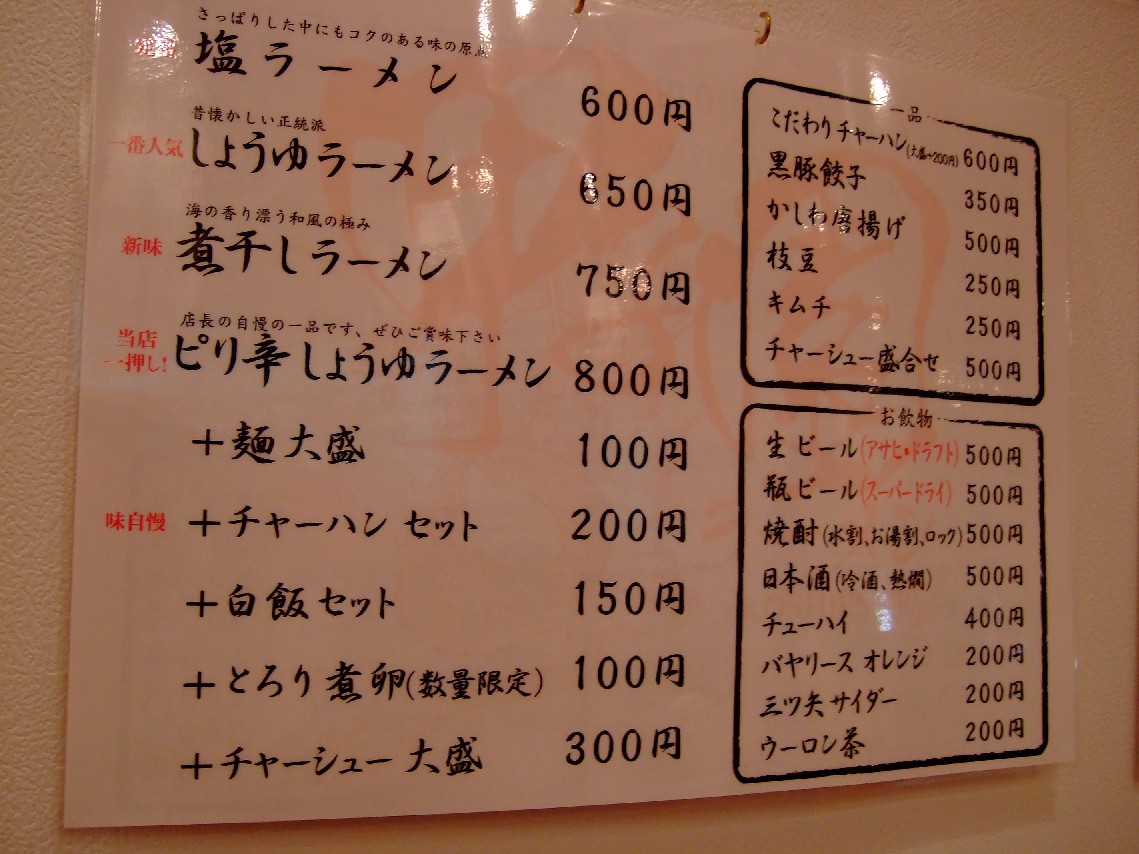 さっぱりした中にもコクのある味の原点
塩ラーメン 600円
昔懐かしい正統派
一番人気 しょうゆラーメン 650円
海の香り漂う和風の極み
新味 煮干しラーメン 750円
店長の自慢の一品です、ぜひご賞味下さい
当店
一押し! ピリ辛しょうゆラーメン 800円
+麺大盛 100円
味自慢 +チャーハン セット 200円
+白飯セット 150円
+とろり煮卵(数量限定) 100円
+チャーシュー大盛 300円
一品
こだわりチャーハン(大盛+200円) 600円
黒豚餃子 350円
かしわ唐揚げ 500円
枝豆 250円
キムチ 250円
チャーシュー盛合せ 500円
お飲物
生ビール(アサヒ・ドラフト) 500円
瓶ビール(スーパードライ) 500円
焼酎(水割、お湯割、ロック) 500円
日本酒(冷酒、熱燗) 500円
チューハイ 400円
バヤリース オレンジ 200円
三ツ矢サイダー 200円
ウーロン茶 200円